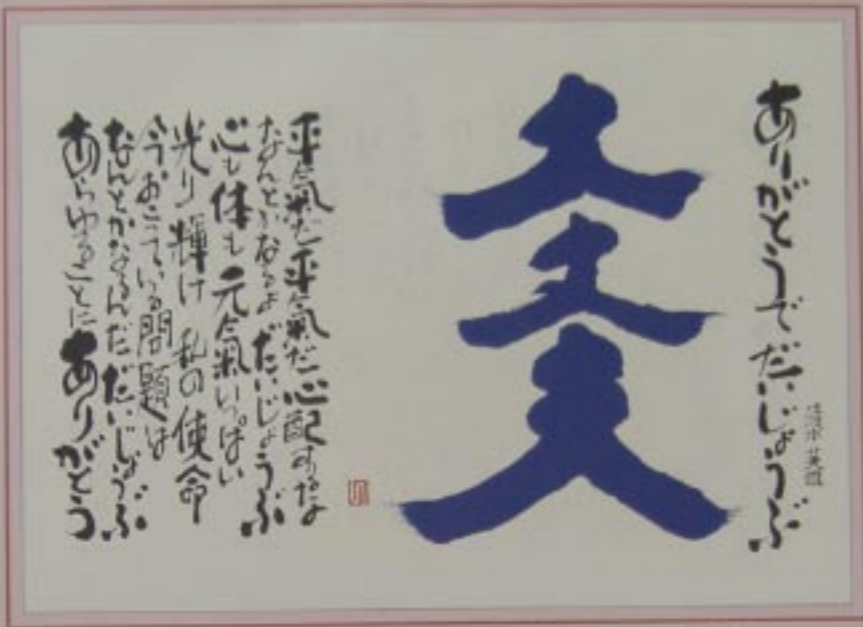 ありがとうでだいじょうぶ
清水英雄
大丈夫
平氣だ平氣だ心配するな
なんとかなるよだいじょうぶ
心も体も元氣いっぱい
光り輝け 私の使命
今おこっている問題は
なんとかなるんだだいじょうぶ
あらゆることにありがとう